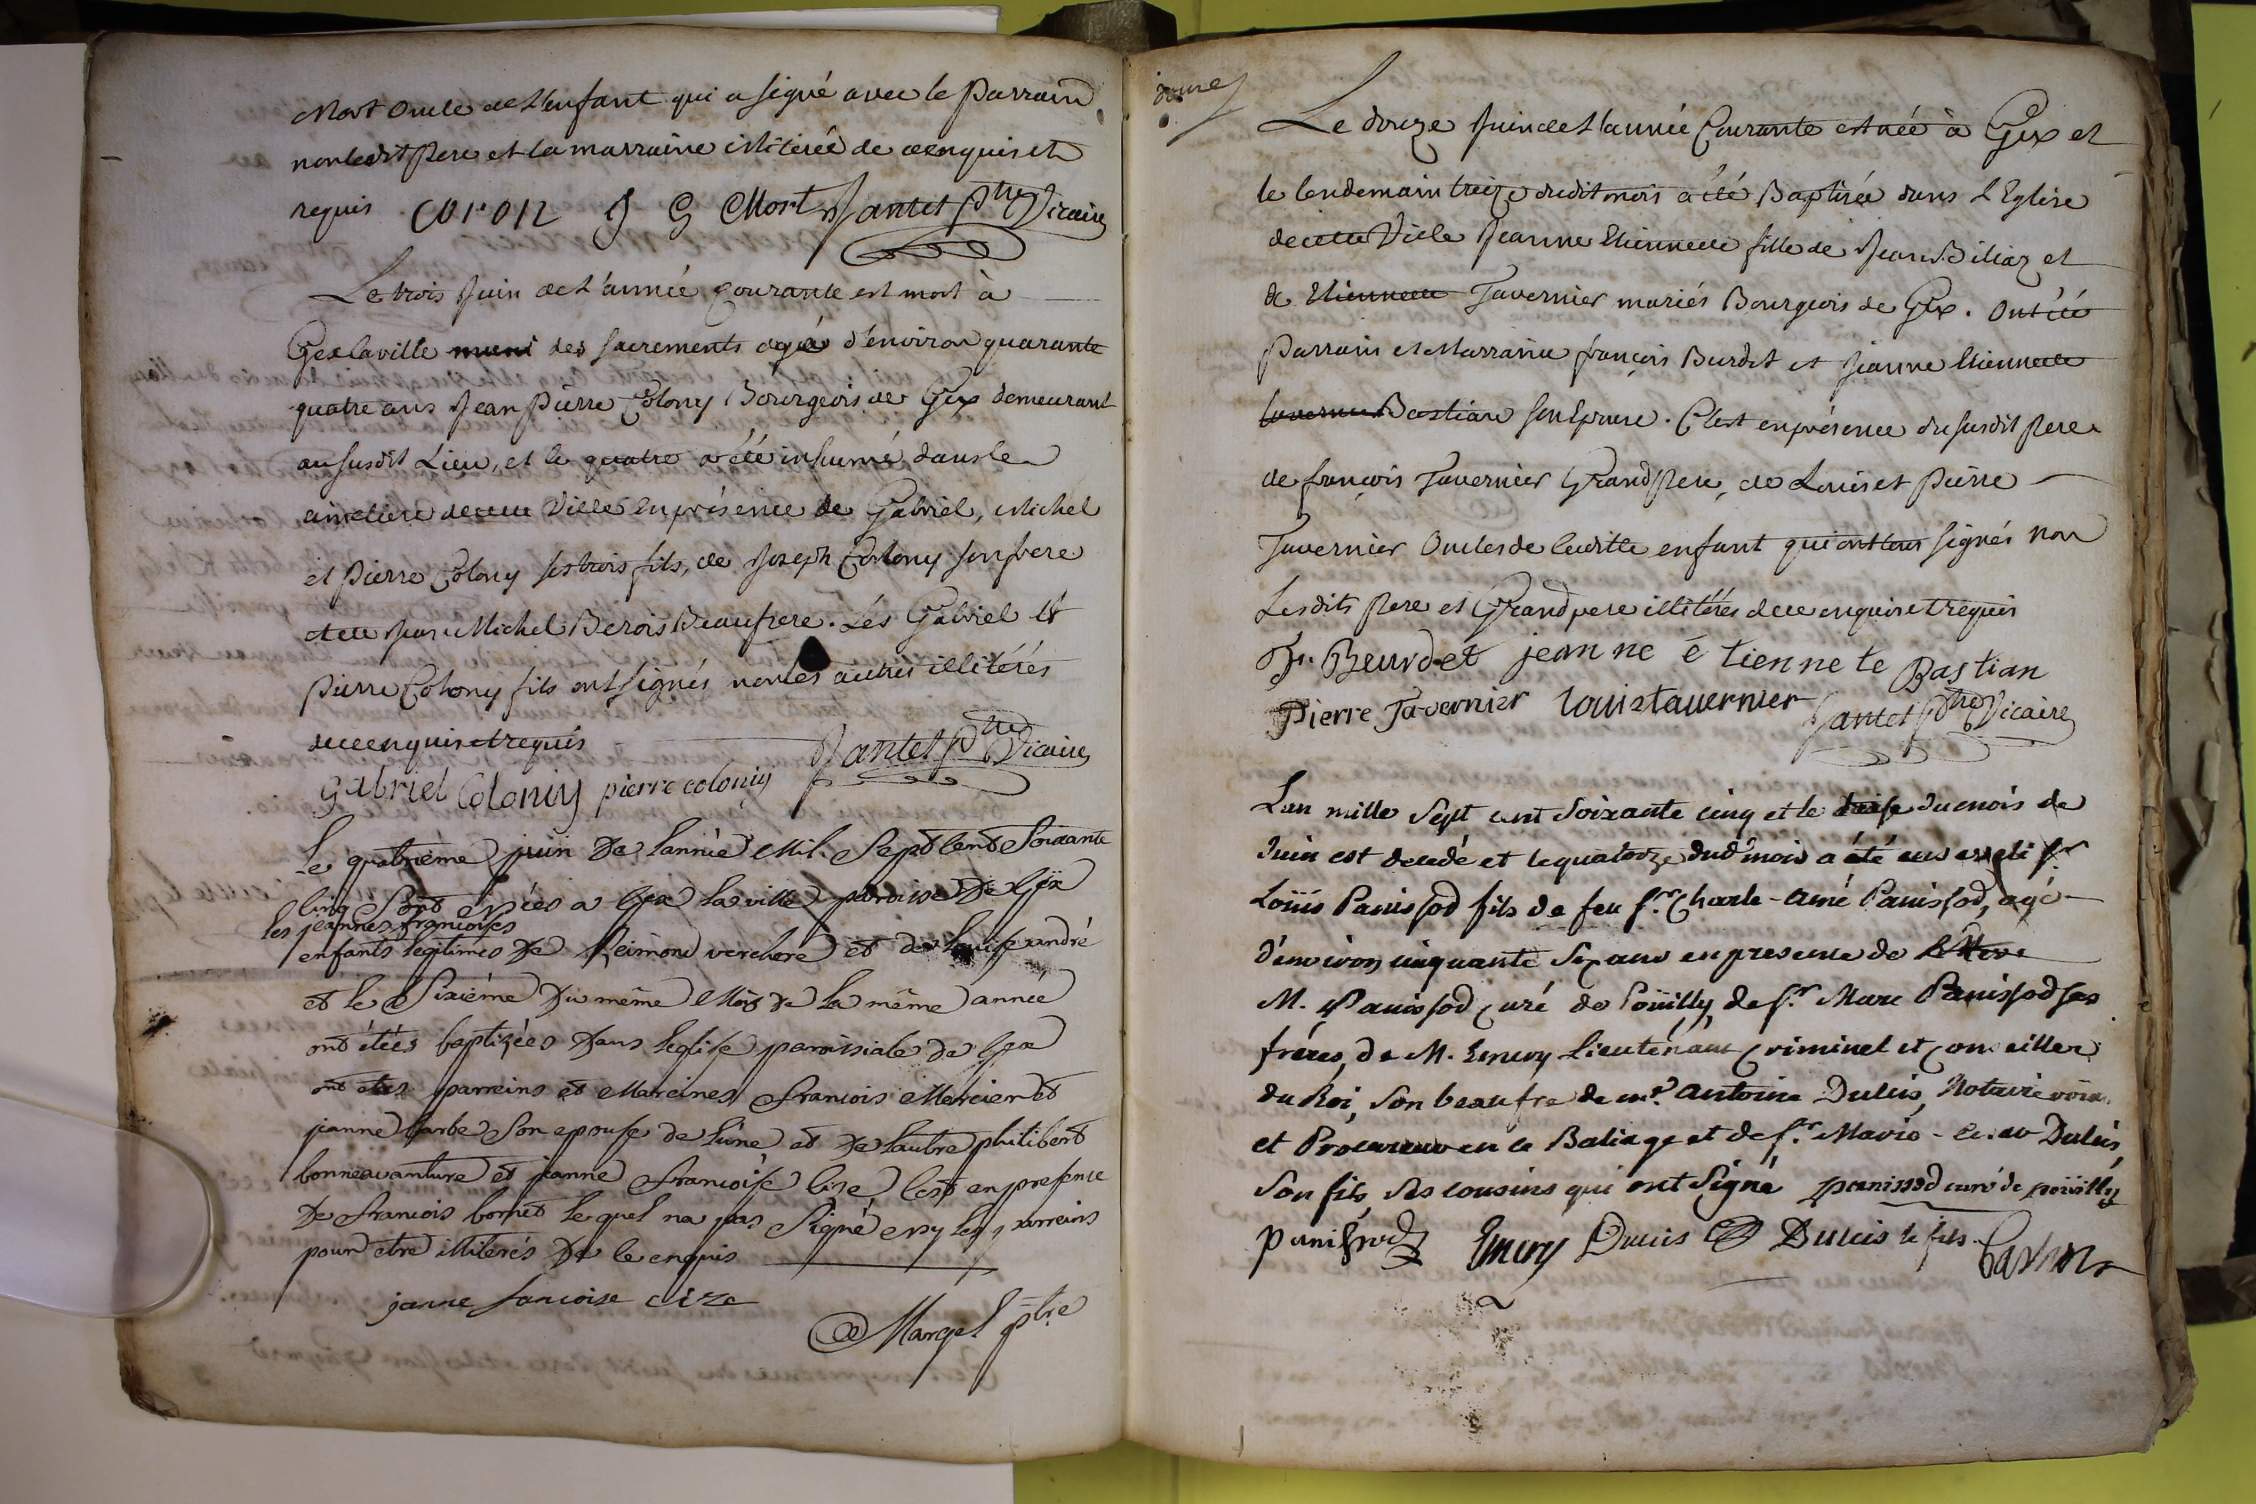 Mort Oncle de L'enfant qui a signé avec le Parrain
non ledit Pere et la marraine illiterée de ce enquis et
requis. coron J G Mort Jantet Ptre Vicaire
Le trois Juin de L'année Courante est mort à
Gex la ville muni des sacrements agé d'environ quarante
quatre ans Jean Pierre Colony Bourgeois de Gex demeurant
au susdit Lieu, et le quatre a été inhumé dans le
cimetiere de cette Ville En présence de Gabriel, Michel
et Pierre Colony ses trois fils, de Joseph Colony son frere
et de Jean Michel Berois Beaufrere. Les Gabriel et
Pierre Colony fils ont signés non les autres illitérés
de ce enquis et requis Jantet Ptre Vicaire
gabriel Coloniy pierre coloniy
Le quatrième juin De Lannèe Mil. Sept Cent Soixante
Cinq Sont nées a Gex La ville paroisse De Gex
les jeannes francoises
enfants legitimes De Reimond verchere et de Louise andré
et le Sixième Du même Mois De La même année
ont étéés baptizées Dans leglise paroissiale de Gex
ont étés parreins et Mareines francois Mercier et
janne barbe Son epouse de Lune et De lautre philibert
bonneavanture et jeanne francoise Cize Cest en presence
De francois bornet Le quel na pas Signé ny les parreins
pour etre illiterés De le enquis
janne francoise cize
Margel ptre
Le douze Juin de L'année Courante est née à Gex et
le lendemain treize dudit mois a été Baptisée dans L'Eglise
de cette Ville Jeanne Etiennette fille de Jean Biliaz et
de Etiennette Tavernier mariés Bourgeois de Gex. Ont été
Parrain et Marraine françois Burdet et Jeanne Etiennette
Bastian son Epouse. C'est en présence du susdit Pere
de françois Tavernier Grand Pere, de Louis et Pierre
Tavernier Oncles de ladite enfant qui ont signés non
Lesdits Pere et Grand pere illitérés de ce enquis et requis
fr. Beurdet jeanne étiennete Bastian
Pierre Tavernier Louis tavernier Jantet Ptre Vicaire
L'an mille sept cent soixante cinq et le treise du mois de
Juin est decedé et le quatorze dud' mois a été enseveli sr
Loüis Panissod fils de feu sr. Charle-Amé Panissod, agé
d'environ cinquante six ans en presence de
M. Panissod curé de Poüilly, de sr. Marc Panissod ses
fréres, de M. Emery Lieutenant Criminel et Conseiller
du Roi, son beaufre de mr. Antoine Dulcis, Notaire
et Procureur en ce Baliage et de sr. Dulcis,
son fils, ses cousins qui ont signé panissod curé de poüilly
panissod Emery Dulcis Dulcis le fils